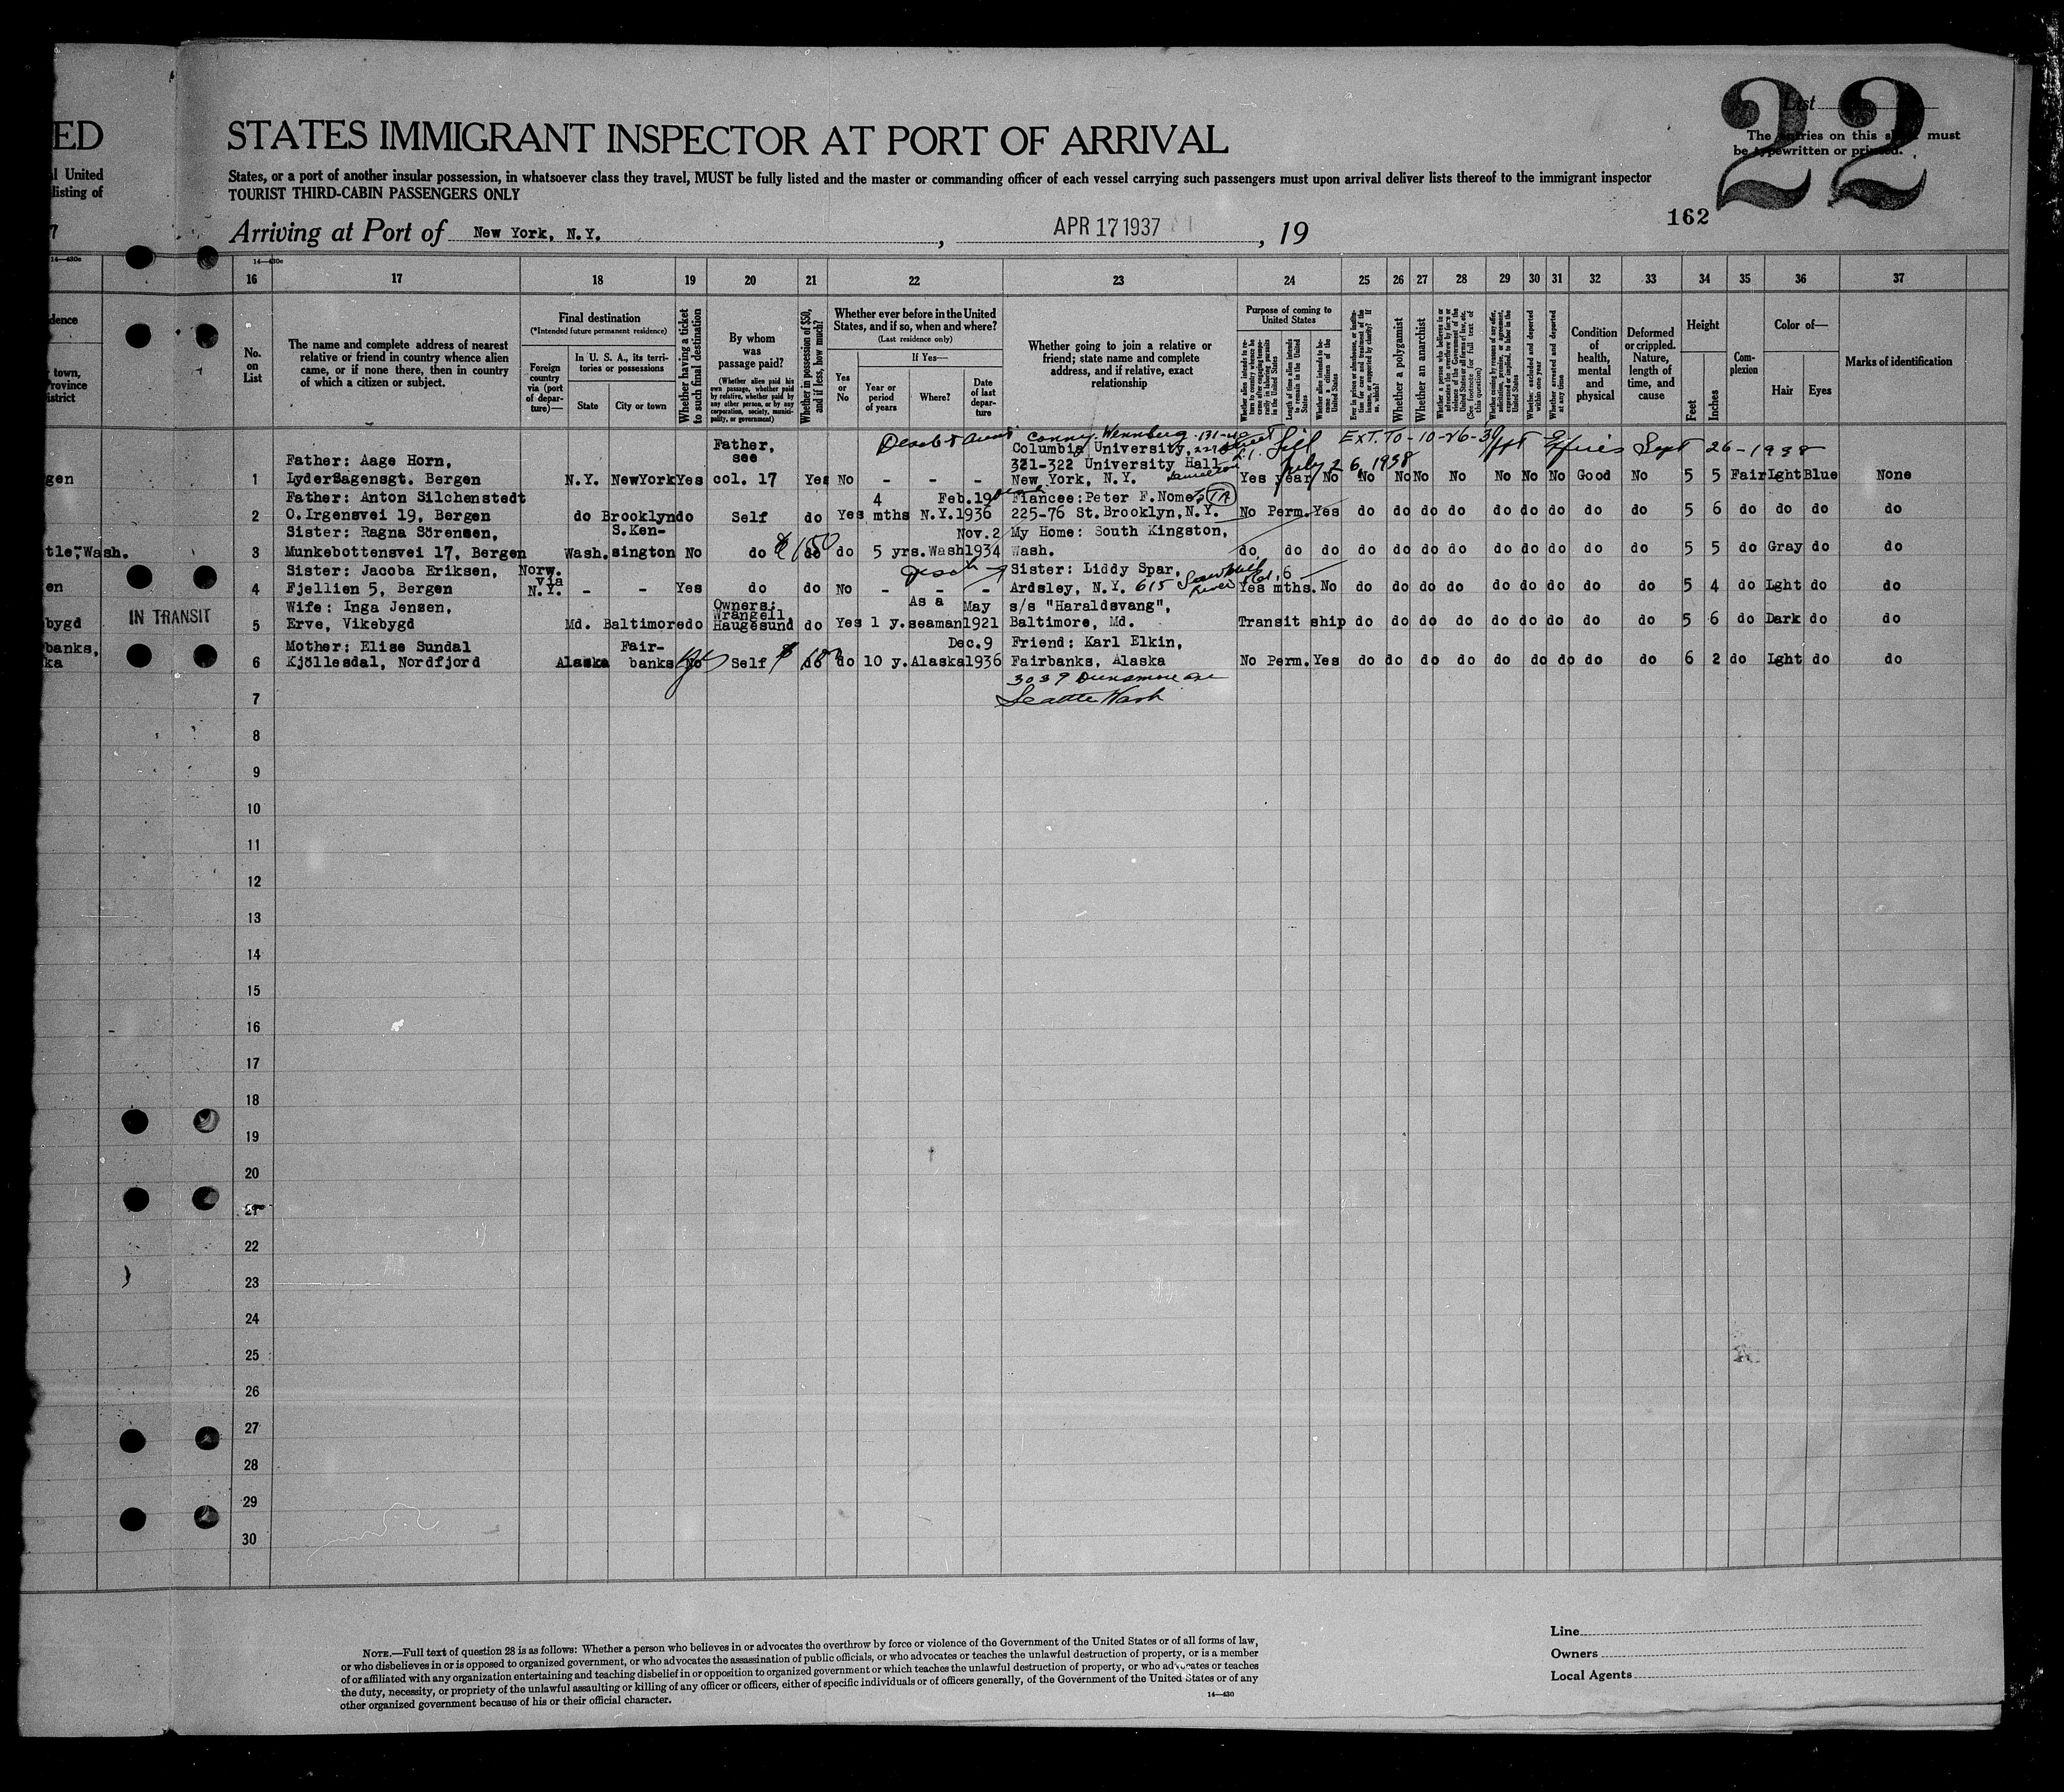 ED
l United
listing of
7
STATES IMMIGRANT INSPECTOR AT PORT OF ARRIVAL
States, or a port of another insular possession, in whatsoever class they travel, MUST be fully listed and the master or commanding officer of each vessel carrying such passengers must upon arrival deliver lists thereof to the immigrant inspector
TOURIST THIRD-CABIN PASSENGERS ONLY
List
22
The entries on this sheet must
be typewritten or printed.
162
Arriving at Port of New York, N.Y. , APR 17 1937 , 19
14—430c
16 17 18 19 20 21 22 23 24 25 26 27 28 29 30 31 32 33 34 35 36 37
No. on List
The name and complete address of nearest relative or friend in country whence alien came, or if none there, then in country of which a citizen or subject.
Final destination
(*Intended future permanent residence)
Foreign country via (port of departure)—
In U. S. A., its territories or possessions
State
City or town
Whether having a ticket to such final destination
By whom was passage paid?
(Whether alien paid his own passage, whether paid by relative, whether paid by any other person, or by any corporation, society, municipality, or government)
Whether in possession of $50, and if less, how much?
Whether ever before in the United States, and if so, when and where?
(Last residence only)
If Yes—
Yes or No
Year or period of years
Where?
Date of last departure
Whether going to join a relative or friend; state name and complete address, and if relative, exact relationship
Purpose of coming to United States
Length of time alien intends to remain in the United States
Whether alien intends to become a citizen of the United States
Whether a polygamist
Whether an anarchist
Whether excluded and deported within one year
Whether arrested and deported at any time
Condition of health, mental and physical
Deformed or crippled. Nature, length of time, and cause
Height
Feet
Inches
Complexion
Color of—
Hair
Eyes
Marks of identification
Conny Wennberg 131-40
EXT. TO - 10-26-38 ppt Expires Sept 26-1938
July 26, 1938
gen 1 Father: Aage Horn, Lyder Sagensgt. Bergen N.Y. NewYork Yes Father, see col. 17 Yes No - - - Columbia University, 321-322 University Hall New York, N.Y. Yes year No No No No No No No No Good No 5 5 Fair Lght Blue None
2 Father: Anton Silchenstedt O.Irgensvei 19, Bergen do Brooklyn do Self do Yes 4 mths N.Y. Feb.19 1936 Fiancee: Peter F.Nomes 225-76 St. Brooklyn, N.Y. No Perm. Yes do do do do do do do do do 5 6 do do do do
tle, Wash. 3 Sister: Ragna Sörensen, Munkebottensvei 17, Bergen Wash. S.Kensington No do $150 do do 5 yrs. Wash Nov.2 1934 My Home: South Kingston, Wash. do do do do do do do do do do do do 5 5 do Gray do do
en 4 Sister: Jacoba Eriksen, Fjellien 5, Bergen Norw. via N.Y. - - Yes do do No - - - Sister: Liddy Spar, Ardsley, N.Y. 615 Saw Mill River Rd. Yes 6 mths. No do do do do do do do do do 5 4 do Lght do do
bygd IN TRANSIT 5 Wife: Inga Jensen, Erve, Vikebygd Md. Baltimore do Owners: Wrangell, Haugesund do Yes 1 y. As a seaman May 1921 s/s "Haraldsvang", Baltimore, Md. Transit ship do do do do do do do do do 5 6 do Dark do do
banks, ka 6 Mother: Elise Sundal Kjöllesdal, Nordfjord Alaska Fairbanks No Self do do 10 y. Alaska Dec.9 1936 Friend: Karl Elkin, Fairbanks, Alaska No Perm. Yes do do do do do do do do do 6 2 do Lght do do
3039 Dunsmore Ave
7 Seattle Wash
8
9
10
11
12
13
14
15
16
17
18
19
20
21
22
23
24
25
26
27
28
29
30
NOTE.—Full text of question 28 is as follows: Whether a person who believes in or advocates the overthrow by force or violence of the Government of the United States or of all forms of law,
or who disbelieves in or is opposed to organized government, or who advocates the assassination of public officials, or who advocates or teaches the unlawful destruction of property, or is a member
of or affiliated with any organization entertaining and teaching disbelief in or opposition to organized government or which teaches the unlawful destruction of property, or who advocates or teaches
the duty, necessity, or propriety of the unlawful assaulting or killing of any officer or officers, either of specific individuals or of officers generally, of the Government of the United States or of any
other organized government because of his or their official character.
14—430
Line
Owners
Local Agents